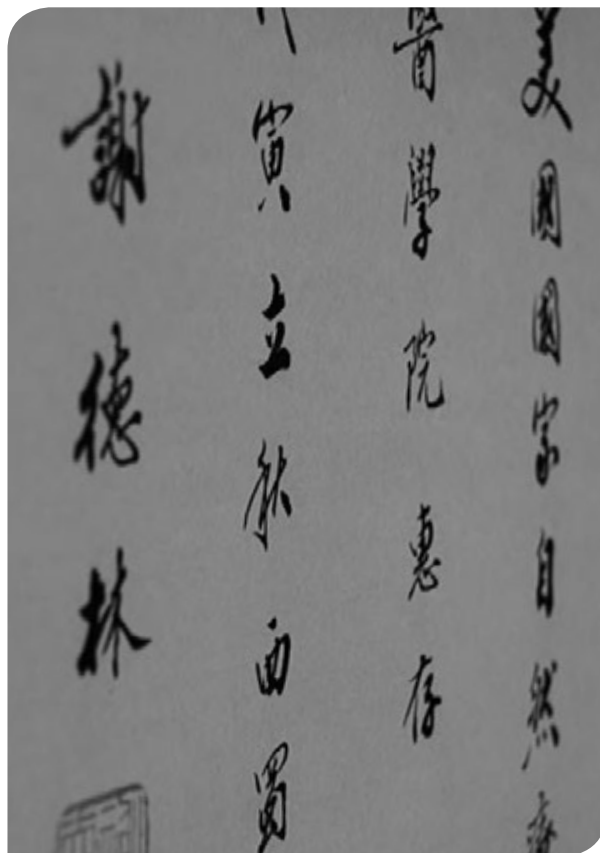 美國國家自然
醫學院惠存
寅立秋西蜀
謝德林